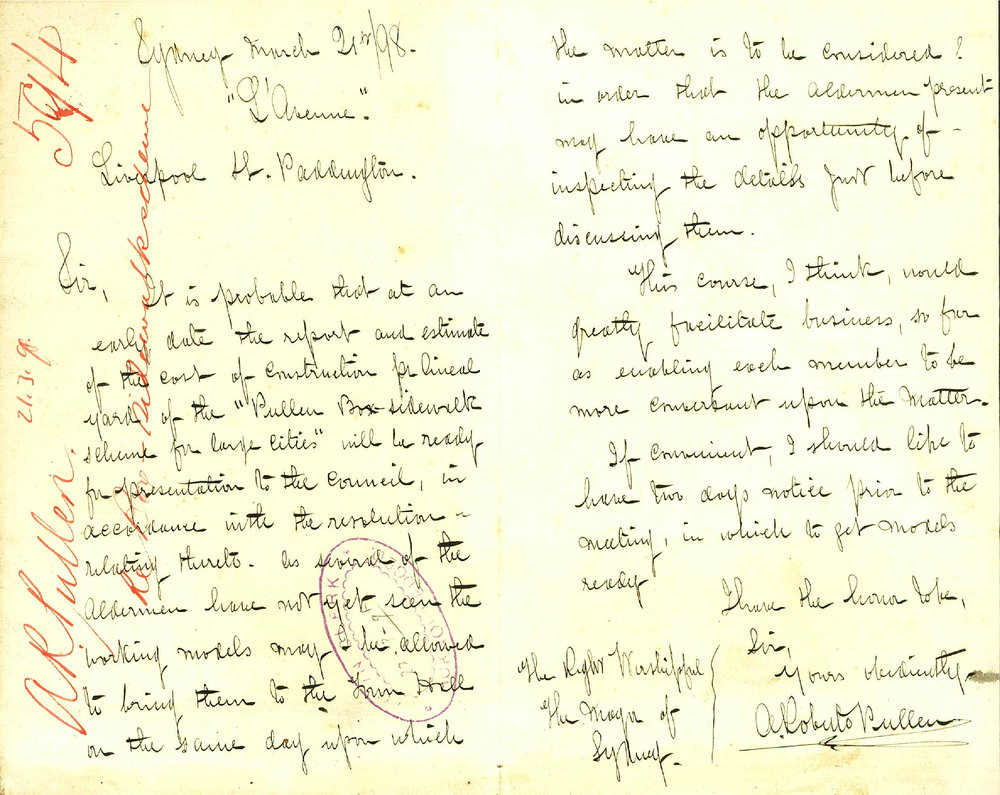 Sydney March 21st/98.
"L'Avenue."
Liverpool St. Paddington.
Sir,
It is probable that at an
early date the report and estimate
of the cost of construction pr lineal
yard of the "Pullen Box-sidewalk
scheme for large cities" will be ready
for presentation to the Council, in
accordance with the resolution -
relating thereto. As several of the
Aldermen have not yet seen the
working models may I be allowed
to bring them to the Town Hall
on the same day upon which
594
21.3.9
A R Pullen.
Re
sidewalk scheme
CLERK
the matter is to be considered?
in order that the Aldermen present
may have an opportunity of -
inspecting the details just before
discussing them.
This course, I think, would
greatly facilitate business, so far
as enabling each member to be
more conversant upon the matter.
If convenient, I should like to
have two days notice prior to the
meeting, in which to get models
ready
I have the honor to be,
Sir,
Yours obediently
A. Roberto Pullen
The Right Worshipful
The Mayor of
Sydney.